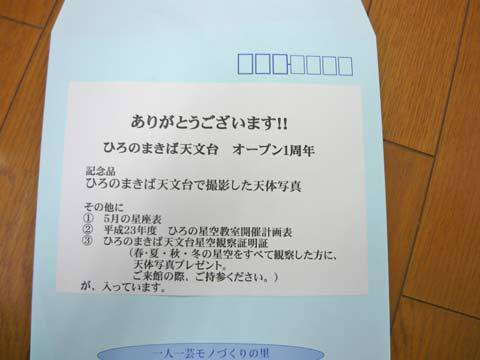 ありがとうございます!!
ひろのまきば天文台 オープン1周年
記念品
ひろのまきば天文台で撮影した天体写真
その他に
① 5月の星座表
② 平成23年度 ひろの星空教室開催計画表
③ ひろのまきば天文台星空観察証明証
(春・夏・秋・冬の星空をすべて観察した方に、
天体写真プレゼント。
ご来館の際、ご持参ください。)
が、入っています。
一人一芸モノづくりの里